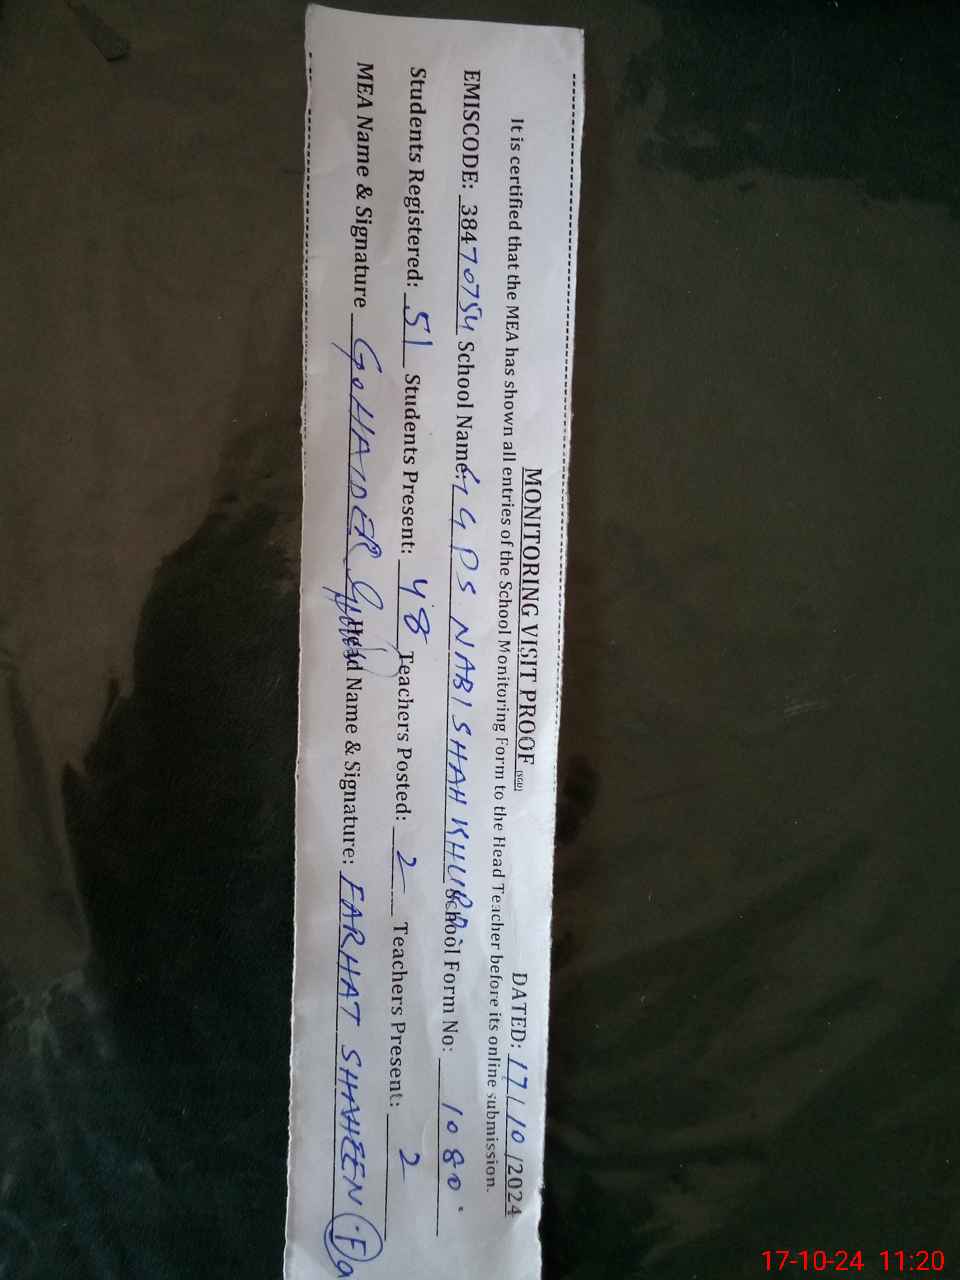 MONITORING VISIT PROOF (SGD) DATED: 17/10/2024
It is certified that the MEA has shown all entries of the School Monitoring Form to the Head Teacher before its online submission.
EMISCODE: 38470754 School Name: GGPS NABI SHAH KHURD School Form No: 1080.
Students Registered: 51 Students Present: 48 Teachers Posted: 2 Teachers Present: 2
MEA Name & Signature G. HAIDER Head Name & Signature: FARHAT SHAHEEN
17-10-24 11:20